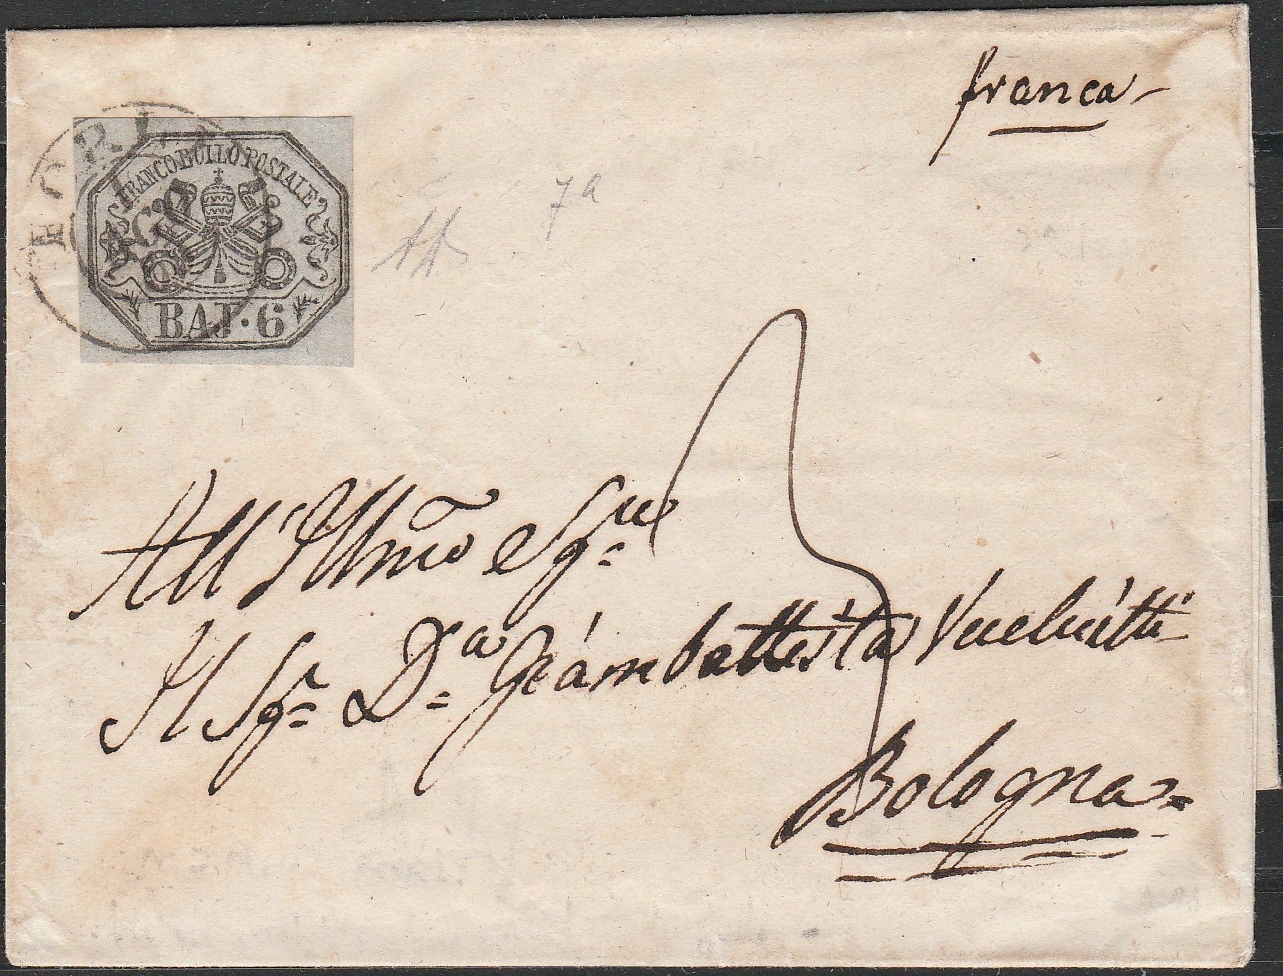 franca
FRANCO BOLLO POSTALE
BAJ·6
FORLI
7a
All' Illmo e Sgre
Il Sgr Dn Giambattista
Bologna